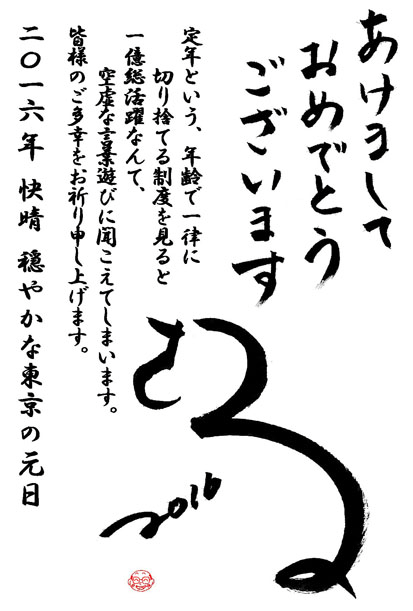 あけまして
おめでとう
ございます
定年という、年齢で一律に
切り捨てる制度を見ると
一億総活躍なんて、
空虚な言葉遊びに聞こえてしまいます。
皆様のご多幸をお祈り申し上げます。
二〇一六年 快晴 穏やかな東京の元日
さる
2016